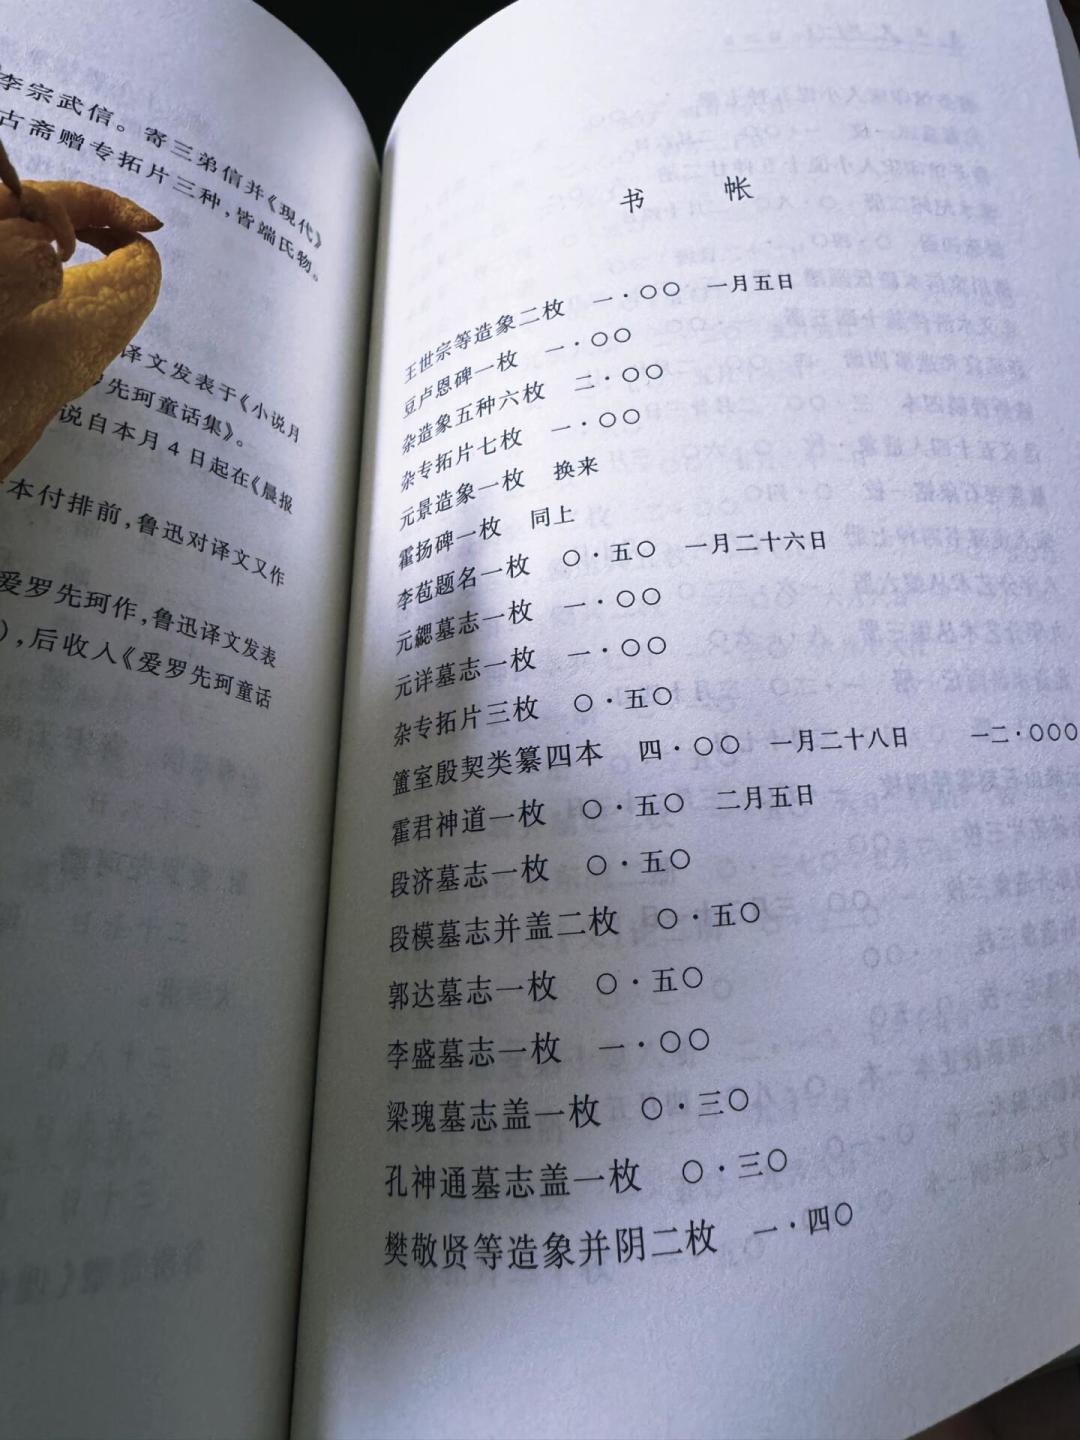 李宗武信。寄三弟信并《现代》
古斋赠专拓片三种,皆端氏物。
译文发表于《小说月
罗先珂童话集》。
说自本月4日起在《晨报
本付排前,鲁迅对译文又作
爱罗先珂作,鲁迅译文发表
),后收入《爱罗先珂童话
书 帐
王世宗等造象二枚 一·〇〇 一月五日
豆卢恩碑一枚 一·〇〇
杂造象五种六枚 二·〇〇
杂专拓片七枚 一·〇〇
元景造象一枚 换来
霍扬碑一枚 同上
李苞题名一枚 〇·五〇 一月二十六日
元飏墓志一枚 一·〇〇
元详墓志一枚 一·〇〇
杂专拓片三枚 〇·五〇
簠室殷契类纂四本 四·〇〇 一月二十八日 一二·〇〇〇
霍君神道一枚 〇·五〇 二月五日
段济墓志一枚 〇·五〇
段模墓志并盖二枚 〇·五〇
郭达墓志一枚 〇·五〇
李盛墓志一枚 一·〇〇
梁瑰墓志盖一枚 〇·三〇
孔神通墓志盖一枚 〇·三〇
樊敬贤等造象并阴二枚 一·四〇